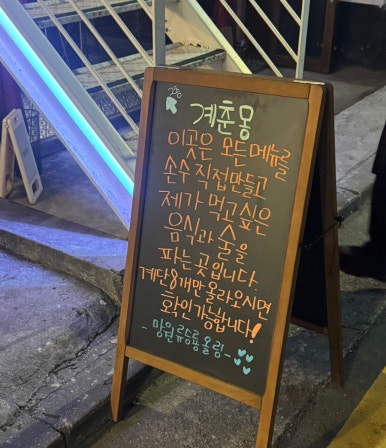 계춘몽
이곳은 모든 메뉴를
손수 직접만들고
제가 먹고싶은
음식과 술을
파는 곳입니다.
계단8개만 올라오시면
확인가능합니다!
- 망원류승룡올림 -